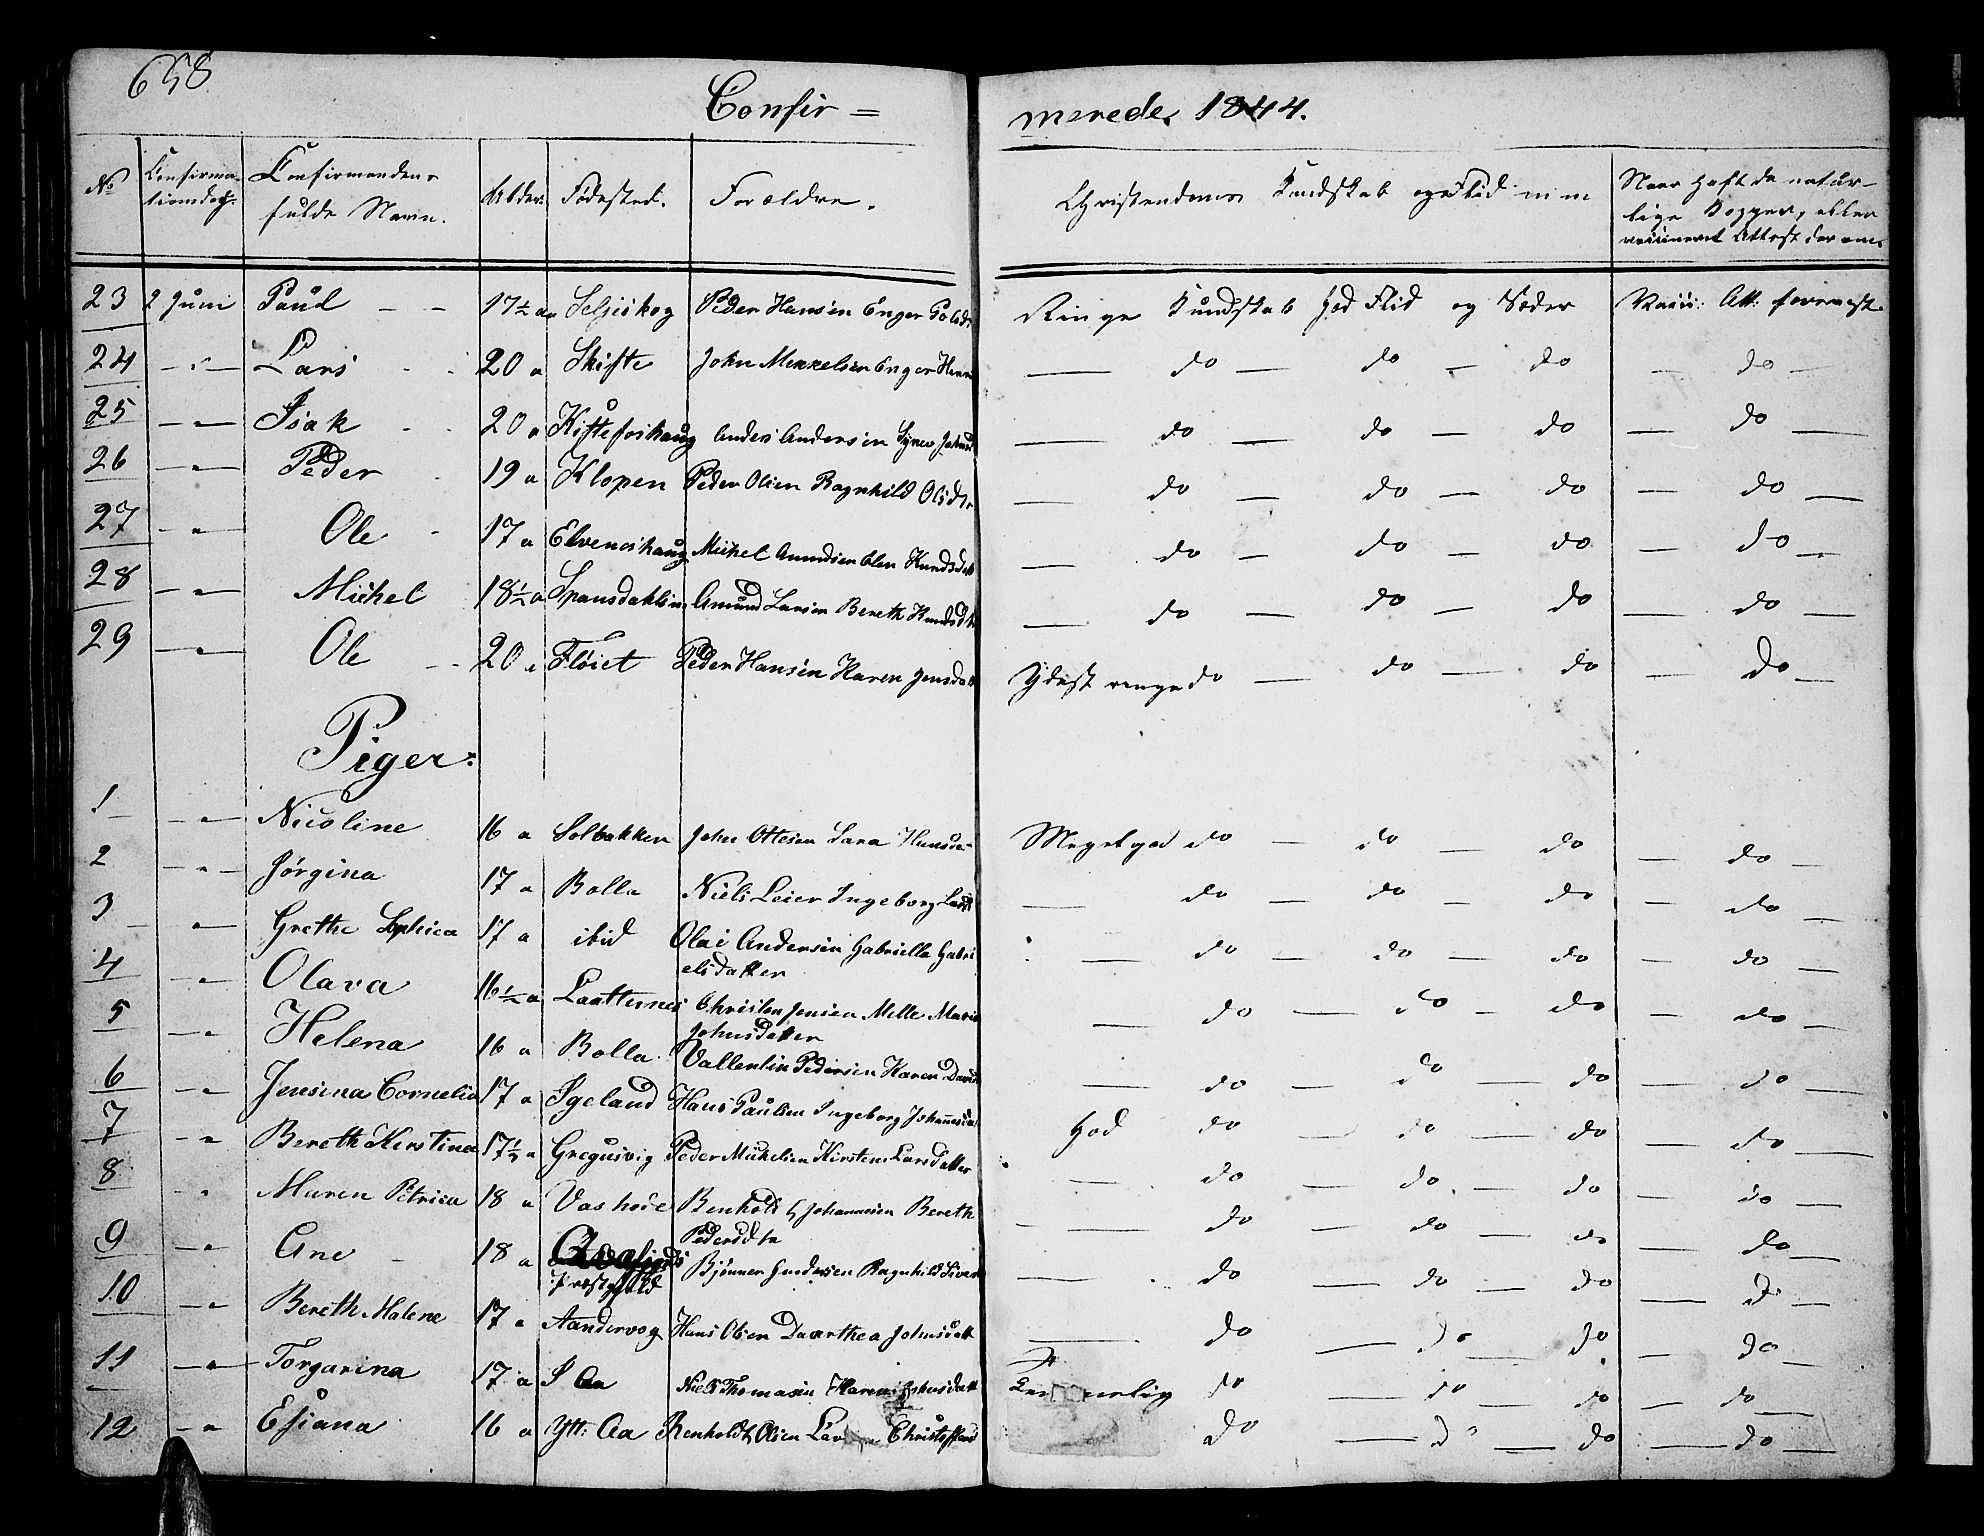 658
Confir=
merede, 1844.
No Confirma- Confirmandens Alder. Fødested. Forældre. Christendoms Kundskab og Flid
tionsdag. fulde Navn. Naar Haft de natur-
lige Kopper, eller
vaccineret Attest derom.
23 2 Juni Paul - - 17½ a Seljeskog Peder Hansen Enger Ringe Kundskab God Flid og Sæder Vacci: Att: forevist.
24 - " - Lars - - 20 a Skifte John Mikkelsen Enger — do — do — do — do —
25 - " - Isak - - 20 a Kisteforhaug Anders Andersen — do — do — do — do —
26 - " - Peder - 19 a Klopen Peder Olsen Ragnhild Olsdtr — do — do — do — do —
27 - " - Ole - 17 a Elveneshaug Mickel Amundsen Elen Knudsdatt — do — do — do — do —
28 - " - Mickel 18½ a Spansdahlen Amund Larsen Bereth Knudsdtr — do — do — do — do —
29 - " - Ole - - 20 a Fløiet Peder Hansen Karen Jensdatt Ydest ringe do — do — do — do —
Piger.
1 - " - Nicoline 16 a Solbakken John Ottesen Sara Hansda Meget god do — do — do — do —
2 - " - Jørgina 17 a Bolla Niels Leier Ingeborg Larsd — do — do — do — do —
3 - " - Grethe Sophia 17 a ibid Olai Andersen Gabriella Gabri — do — do — do — do —
elsdatter
4 - " - Olava 16½ a Laatternes Christen Jensen Melle Maria — do — do — do — do —
Johnsdatter
5 - " - Helena 16 a Bolla Vallentin Pedersen Karen David — do — do — do — do —
6 - " - Jensina Cornelia 17 a Igeland Hans Paulsen Ingeborg Johannesd God do — do — do — do —
7 - " - Bereth Kirstina 17½ a Gregusvig Peder Mickelsen Kirsten Larsdatter — do — do — do — do —
8 " Maren Petrica 18 a Vashode Johannesen Bereth — do — do — do — do —
Pedersdtr
9 - " - Ane - 18 a Bjønner Gundersen Ragnhild Siver — do — do — do — do —
10 - " - Bereth Malene 17 a Aandervog Hans Olsen Daarthea Johnsdatt — do — do — do — do —
11 - " - Torgarina 17 a I Aa Niels Thomasen Karen Johnsdatt do — do — do — do —
12 - " Esiana 16 a Ytt: Aa Renholdt Olsen do — do — do — do —